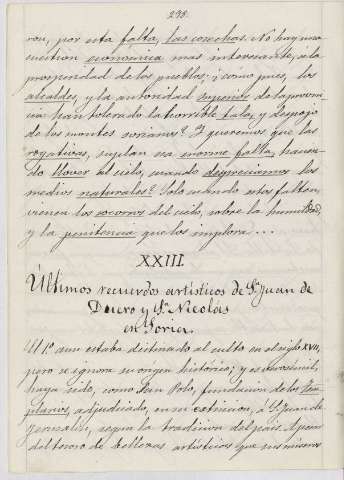 298.
ron, por esta falta, las cosechas. No hay una
cuestion económica mas interesante, á la
prosperidad de los pueblos; ¿cómo pues, los
alcaldes, y la autoridad superior de la provin-
cia han tolerado la horrible tala, y despojo
de los montes sorianos? ¿Y queremos que las
rogativas, suplan esa enorme falta, hacien-
do llover al cielo, cuando despreciamos los
medios naturales? Solo cuando estos faltan,
vienen los socorros del cielo, sobre la humildad,
y la penitencia que los implora...
XXIII.
Últimos recuerdos artísticos de Sn. Juan de
Duero y Sn. Nicolás
en Soria.
El 1º. aun estaba destinado al culto en el siglo XVII,
pero se ignora su origen histórico; y es verosímil,
haya sido, como San Polo, fundacion de los Tem-
plarios, adjudicado, en su extincion, á Sn. Juan de
Jerusalén, segun la tradicion del país. Apesar
del tesoro de bellezas artísticas que sus místicos